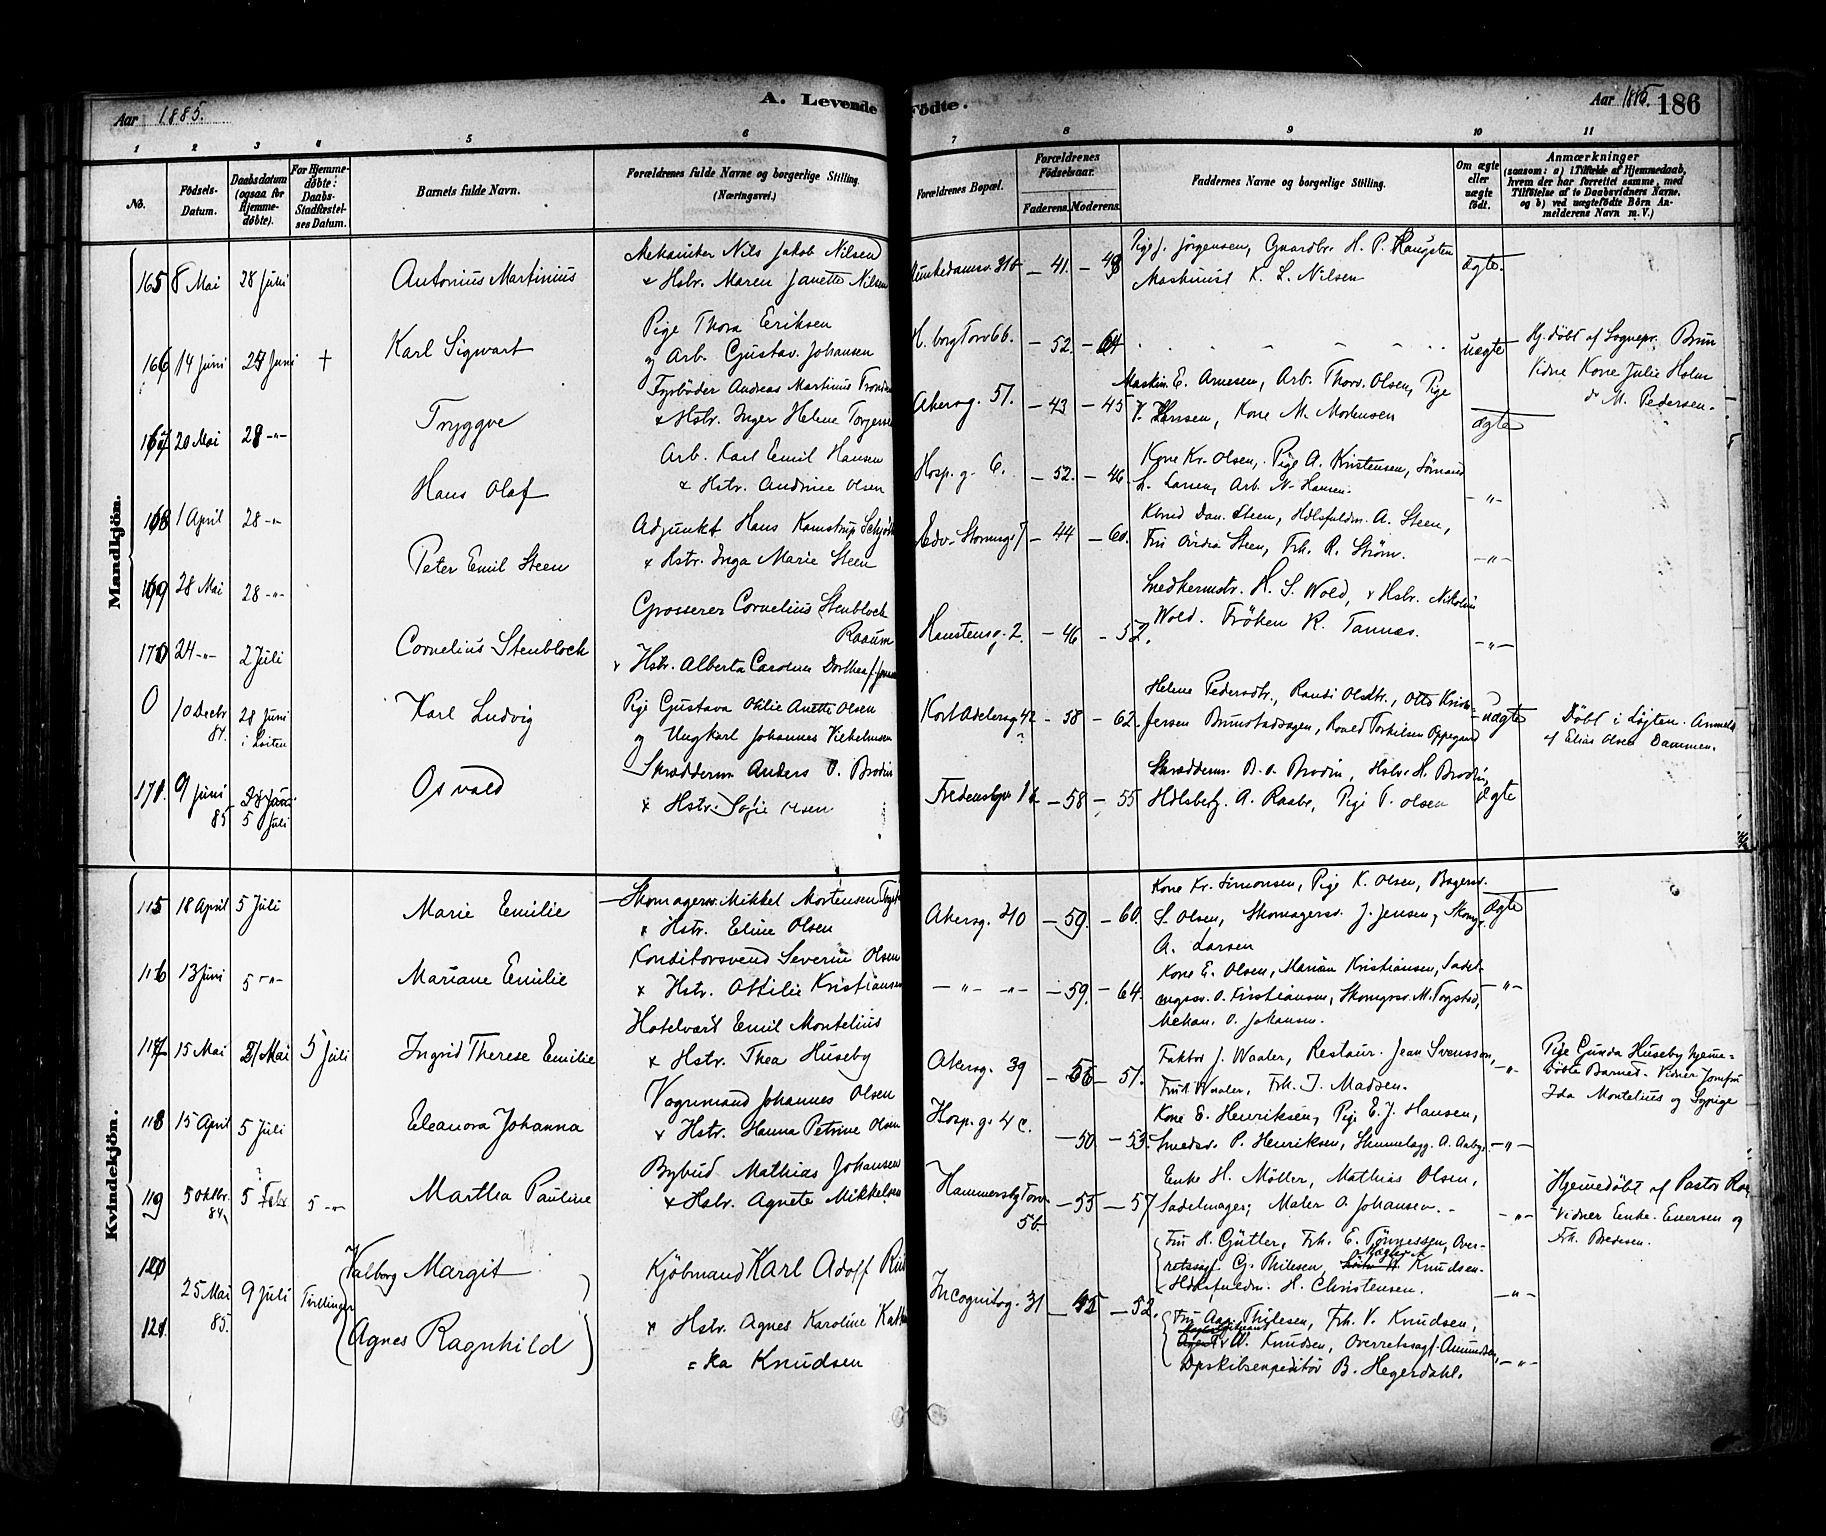 Aar 1885.
A. Levende Fødte.
Aar 1885. 186
1 2 3 4 5 6 7 8 9 10 11
No.
Fødsels-Datum.
Daabsdatum (ogsaa for Hjemme-døbte).
For Hjemme-døbte: Daabs-Stadfæstel-ses Datum.
Barnets fulde Navn.
Forældrenes fulde Navne og borgerlige Stilling. (Næringsvei.)
Forældrenes Bopæl.
Forældrenes Fødselsaar.
Faderens. Moderens.
Faddernes Navne og borgerlige Stilling.
Om ægte eller uægte født.
Anmærkninger
(saasom: a) i Tilfælde af Hjemmedaab, hvem der har forrettet samme, med Tilføielse af to Daabsvidners Navne, og b) ved uægtefødte Børn Anmelderens Navn m. V.)
Mandkjøn.
165 8 Mai 28 Juni Antonius Martinius
Mekaniker Nils Jakob Nilsen
& Hstr. Maren Janette Nilsen
Munkedamsv. 31b – 41. – 48
Pige J. Jørgensen, Gaardbr. H. P. Haugsten
Maskinist K. L. Nilsen
Ægte.
166 14 Juni 27 Juni + Karl Sigwart
Pige Thora Eriksen
og Arb. Gustav Johansen
H.borg Torv 6b. – 52. – 64
uægte
Hj. døbt af Sognepr. Brun
Vidne Kone Julie Holm
do M. Pedersen.
167 20 Mai 28 –"– Tryggve
Fyrbøder Andreas Martinus
& Hstr. Inger Helene
Akersg. 57. – 43 – 45
Maskin. E. Arnesen, Arb. Thorv. Olsen, Pige
V. Hansen, Kone M. Mortensen
ægte
168 1 April 28 –"– Hans Olaf
Arb. Karl Emil Hansen
& Hstr. Andrine Olsen
Hosp. g. 6. – 52. – 46
Kone Kr. Olsen, Pige A. Kristensen, Sømand
L. Larsen, Arb. N. Hansen.
–"–
169 28 Mai 28 –"– Peter Emil Steen
Adjunkt Hans Kamstrup
& Hstr. Inga Marie Steen
Edv. Stormsg. 7 – 44 – 60.
Kbmd Dan. Steen, Hdlsfuldm. A. Steen,
Fru Steen, Frk. R. Strøm.
–"–
170 24 –"– 2 Juli Cornelius Stenblock
Grosserer Cornelius Stenblock
Raaum
& Hstr. Alberta Caroline Dorthea
Hanstensg. 2. – 46 – 52.
Snedkermstr. H. S. Wold, & Hstr. Nikoline
Wold. Frøken K. Tannæs.
–"–
0 10 Decbr 84. 28 Juni i Løiten Karl Ludvig
Pige Gustava Otilie Anette Olsen
og Ungkarl Johannes Vilhelmsen
Kort Adelersg. 42 – 38 – 62.
Helene Pedersdtr., Randi Olsdtr., Otto
uægte
Døbt i Løjten. Anmeldt
af Elias Olsen Dammen.
171. 9 Juni 85 5 Juli Osvald
Skræddersv. Anders O. Brodin
& Hstr. Sofie Olsen
– 58 – 55
Skræddersv. B. O. Brodin, Hstr. H. Brodin
A. Raabe, Pige P. Olsen
ægte
Kvindekjøn.
115 18 April 5 Juli Marie Emilie
Skomagersv. Mikkel Mortensen
& Hstr. Eline Olsen
Akersg. 40 – 59. – 60.
Kone Kr. Simonsen, Pige K. Olsen, Bagersv.
S. Olsen, Skomagersv. J. Jensen, Skomg.
A. Larsen
Ægte
116 13 Juni 5 –"– Mariane Emilie
Konditorsvend Severin Olsen
& Hstr. Ottilie Kristiansen
–"– –"– – 59. – 64.
Kone E. Olsen, Marian Kristiansen, Sadel-
mgsv. O. Kristiansen, Skomgrsv. M. Torystad,
Mekan. O. Johansen.
–"–
117 15 Mai 21 Mai 5 Juli Ingrid Therese Emilie
Hotelvært Emil Montelius
& Hstr. Thea Huseby
Akersg. 39 – 56 – 51.
Faktor J. Waaler, Restaur. Jean Svensson,
Fru Waaler, Frk. J. Madsen.
–"–
Pige Gunda Huseby hjeme-
døbte Barnet. Vidner Jomfru
Ida Montelius og Sypige
118 15 April 5 Juli Eleanora Johanna
Vognmand Johannes Olsen
& Hstr. Hanna Petrine Olsen
Hosp. g. 4 c. – 50. – 53.
Kone E. Henriksen, Pige E. J. Hansen,
Smedsv. P. Henriksen,
–"–
119 5 Oktbr. 84. 5 Febr 5 –"– Martha Pauline
Bybud Mathias Johansen
& Hstr. Agnete Mikkelsen
Hammersby Torv 5b. – 55 – 57
Enke H. Möller, Mathias Olsen,
Sadelmager, Maler O. Johansen. –
–"–
Hjemedøbt af Pastor
Vidner Enke. Enersen og
Frk. Bredesen.
120 Valborg Margit
25 Mai 85. 9 Juli Tvillinger
121. Agnes Ragnhild
Kjøbmand Karl Adolf
& Hstr. Agnes Karoline
Knudsen
Incognitog. 31 – 45 – 52.
Fru H. Gütler, Frk. E. Tønnessen, Over-
retssagf. G. Thilesen, Mægler Knudsen.
Hdlsfuldm. H. Christensen.
–"–
Fru Thilesen, Frk. V. Knudsen,
Knudsen, Overretssagf. Amundsen,
Dpskibsexpeditør B. Hegerdahl.
–"–